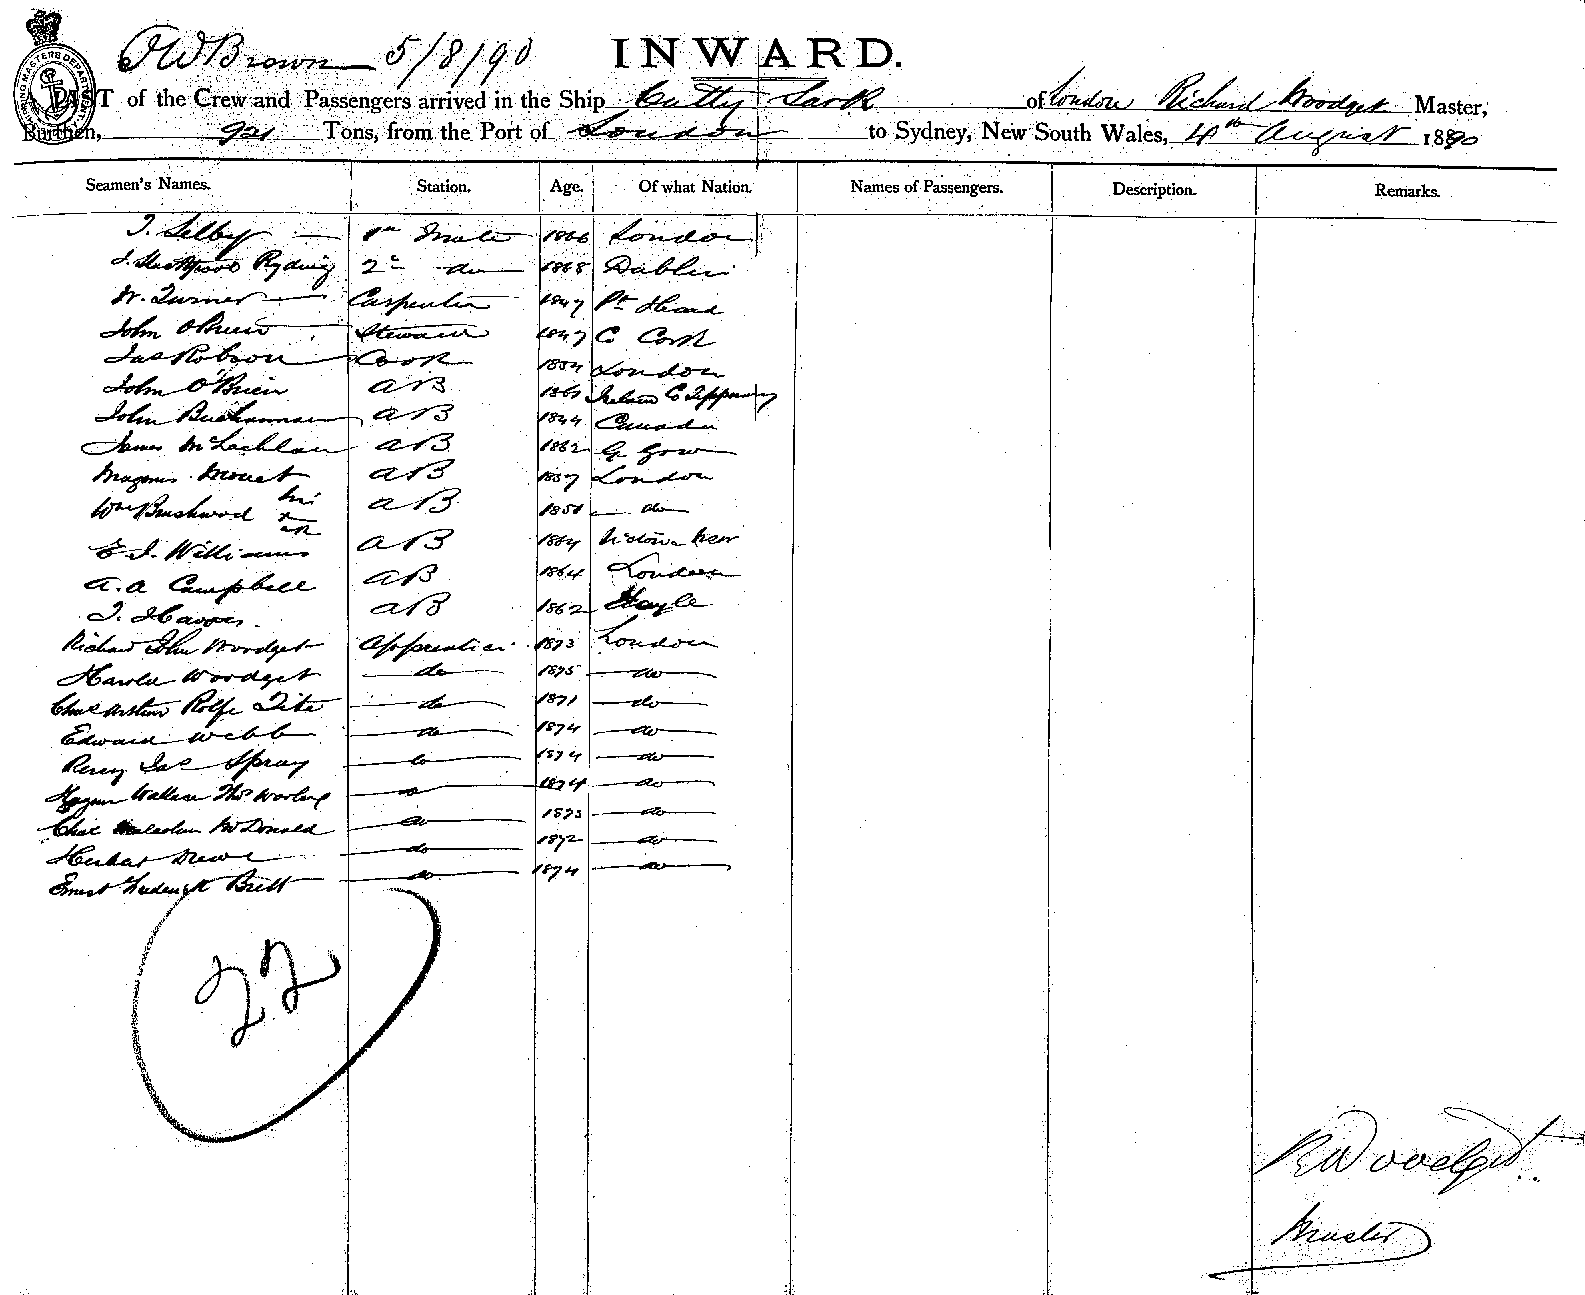 SHIPPING MASTERS DEPARTMENT
O W Brown 5/8/90 INWARD.
LIST of the Crew and Passengers arrived in the Ship Cutty Sark of London Richard Woodget Master,
Burthen, 921 Tons, from the Port of London to Sydney, New South Wales, 4th August 1890
Seamen's Names. Station. Age. Of what Nation. Names of Passengers. Description. Remarks.
T. Selby 1st Mate 1866 London
Ryding 2d do 1868 Dublin
W. Turner Carpenter 1847
John O'Brien Steward 1847 Co Cork
Jas Robson Cook 1854 London
John O'Brien AB Ireland Co Tipperary
John Buchannan AB 1844 Canada
James McLachlan AB 1862 G. Gow
Magnus Mouat AB 1857 London
Wm Brushwood AB 1851 do
E. J. Williams AB 1864
A. A. Campbell AB 1864 London
AB 1862 Hayle
Richard John Woodget Apprentice 1873 London
Harold Woodget do 1875 do
Chas Arthur Rolfe Tite do 1871 do
Edward Webb do 1874 do
Percy Jas Spray do 1874 do
Wallace Thos do 1874 do
Chas Malcolm McDonald do 1873 do
Herbert Drewe do 1872 do
Ernest Frederick Britt do 1874 do
22
R Woodget
Master